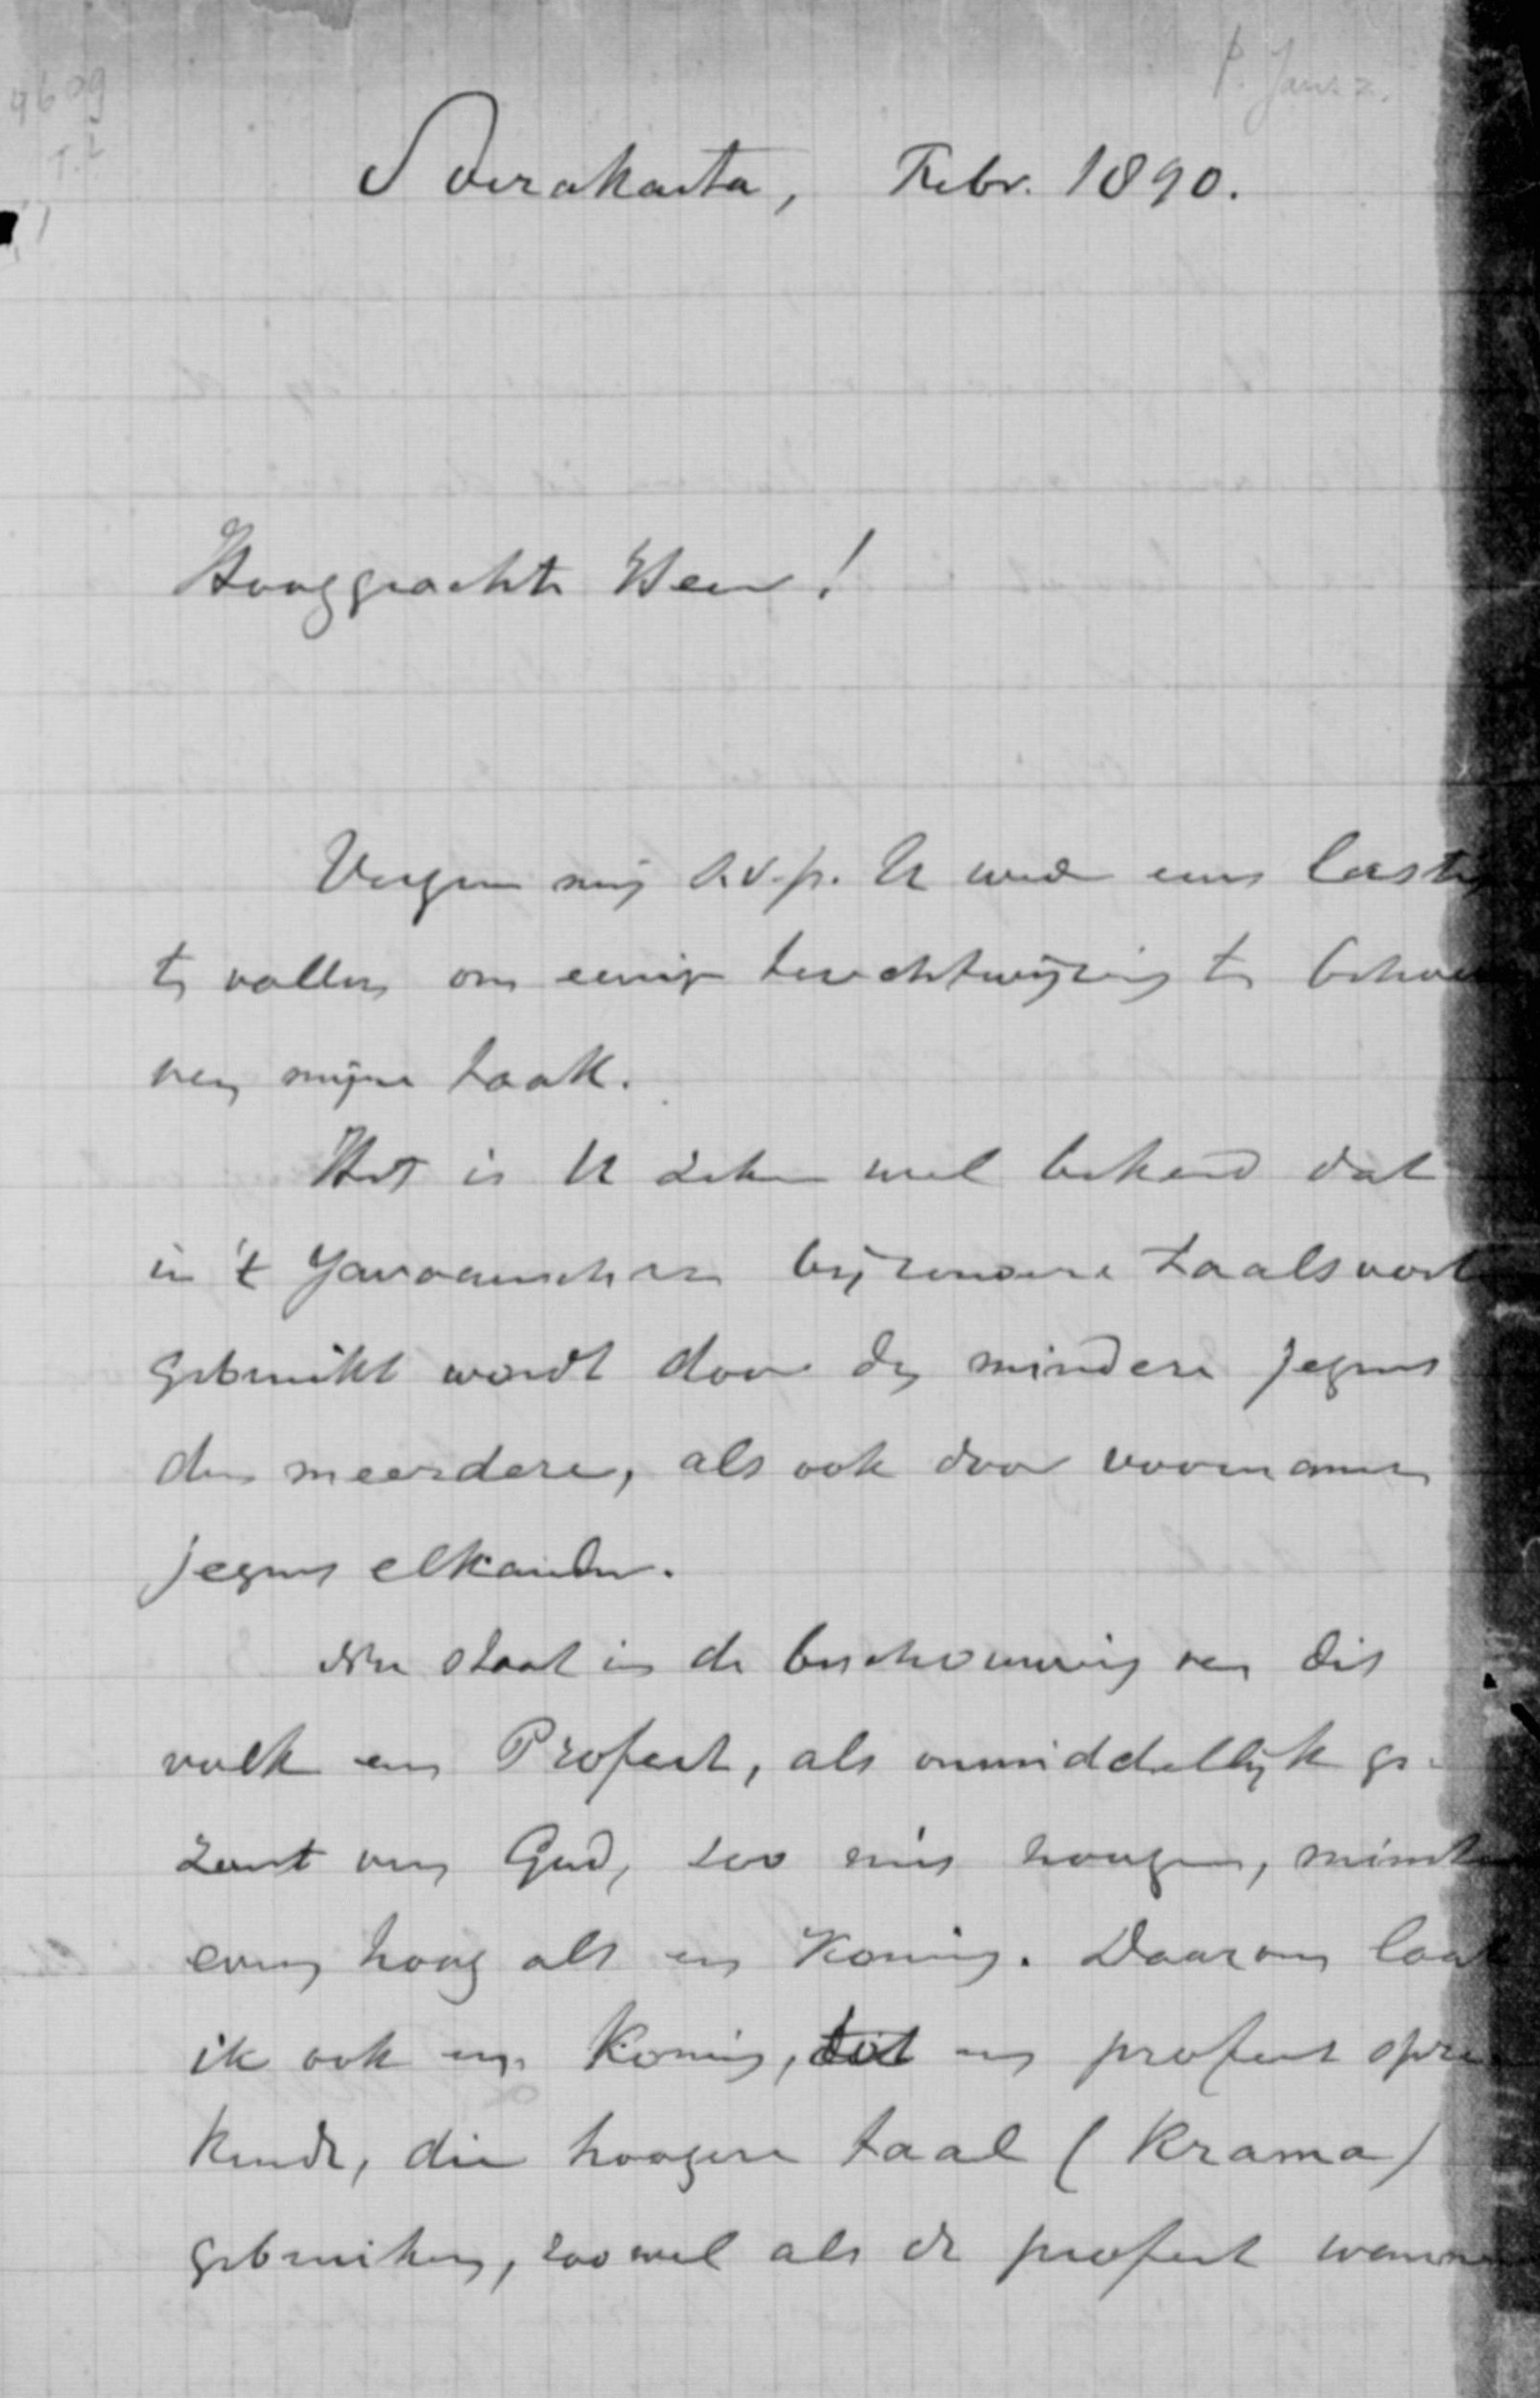 P. Jansz.
Soerakarta, Febr. 1890.
Hooggeachte Heer!
Vergun mij s.v.p. U weder eens lastig
te vallen om eenige terechtwijzing ten behoe
ven mijne taak.
Het is U zeker wel bekend dat
in 't Javaansch een bijzondere taalsoort
gebruikt wordt door den mindere jegens
den meerdere, als ook door voornamen
jegens elkander.
Nu staat in de beschouwing van dit
volk een Profeet, als onmiddellijk ge-
zant van God, zoo niet hooger, minstens
even hoog als een Koning. Daarom laat
ik ook een Koning, tot een profeet spre
kende, die hoogere taal (Krama)
gebruiken, zoowel als de profeet wanneer